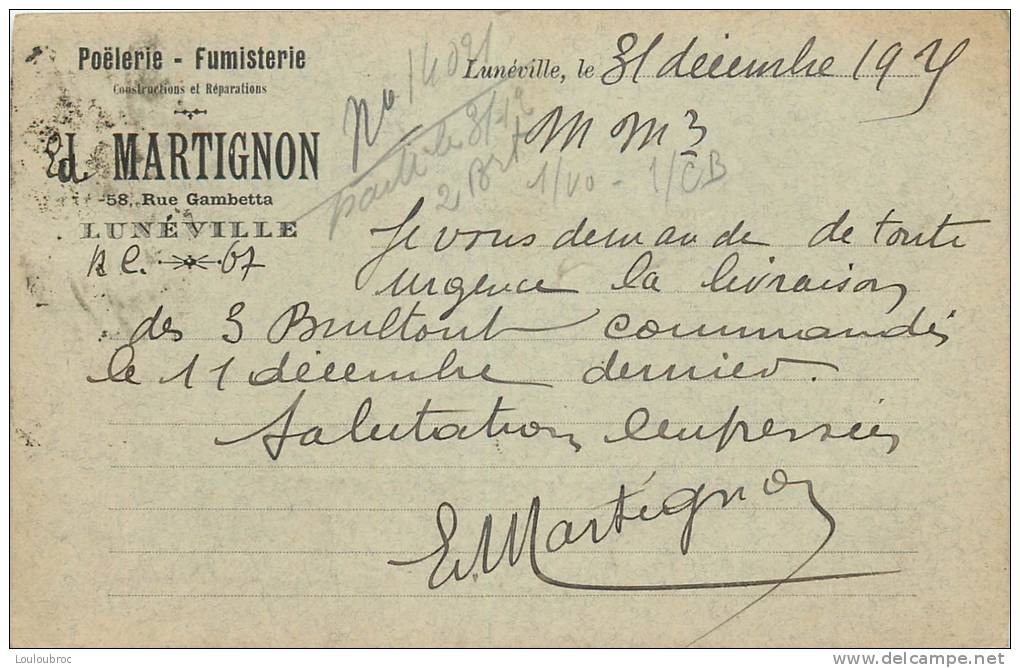 Poëlerie - Fumisterie
Constructions et Réparations
Ed. MARTIGNON
58, Rue Gambetta
LUNÉVILLE
RC. 67
Lunéville, le 31 décembre 19
No 14091
parti le 31/12
1/10 - 1/CB
Je vous demande de toute
urgence la livraison
des 3 Brultout commandés
le 11 décembre dernier.
Salutations empressées
E. Martignon
Louloubroc
www.delcampe.net